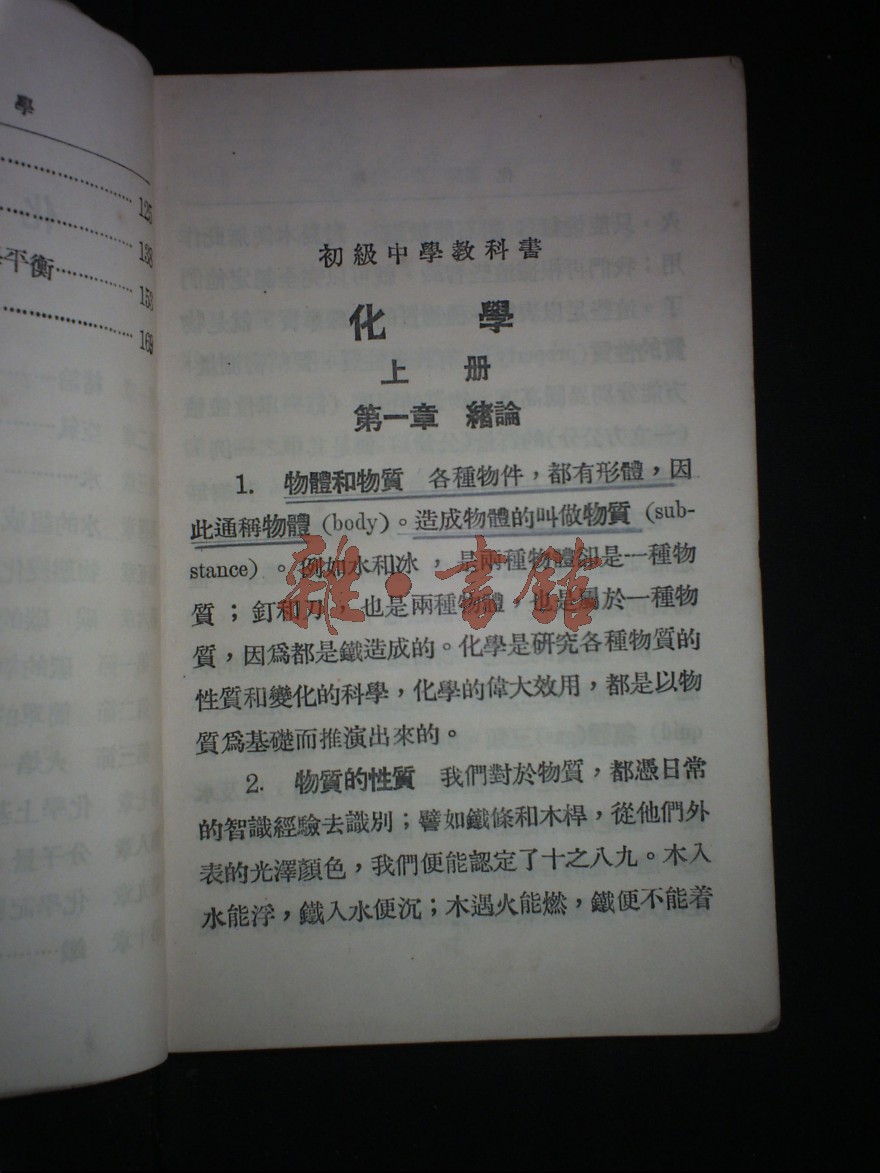 學
125
139
平衡
159
169
初級中學教科書
化 學
上 册
第一章 緒論
1. 物體和物質 各種物件，都有形體，因
此通稱物體 (body)。造成物體的叫做物質 (sub-
stance)。例如水和冰，是兩種物體卻是一種物
質；釘和刀，也是兩種物體，也是屬於一種物
質，因爲都是鐵造成的。化學是研究各種物質的
性質和變化的科學，化學的偉大效用，都是以物
質爲基礎而推演出來的。
2. 物質的性質 我們對於物質，都憑日常
的智識經驗去識別；譬如鐵條和木桿，從他們外
表的光澤顏色，我們便能認定了十之八九。木入
水能浮，鐵入水便沉；木遇火能燃，鐵便不能着
雜·書館